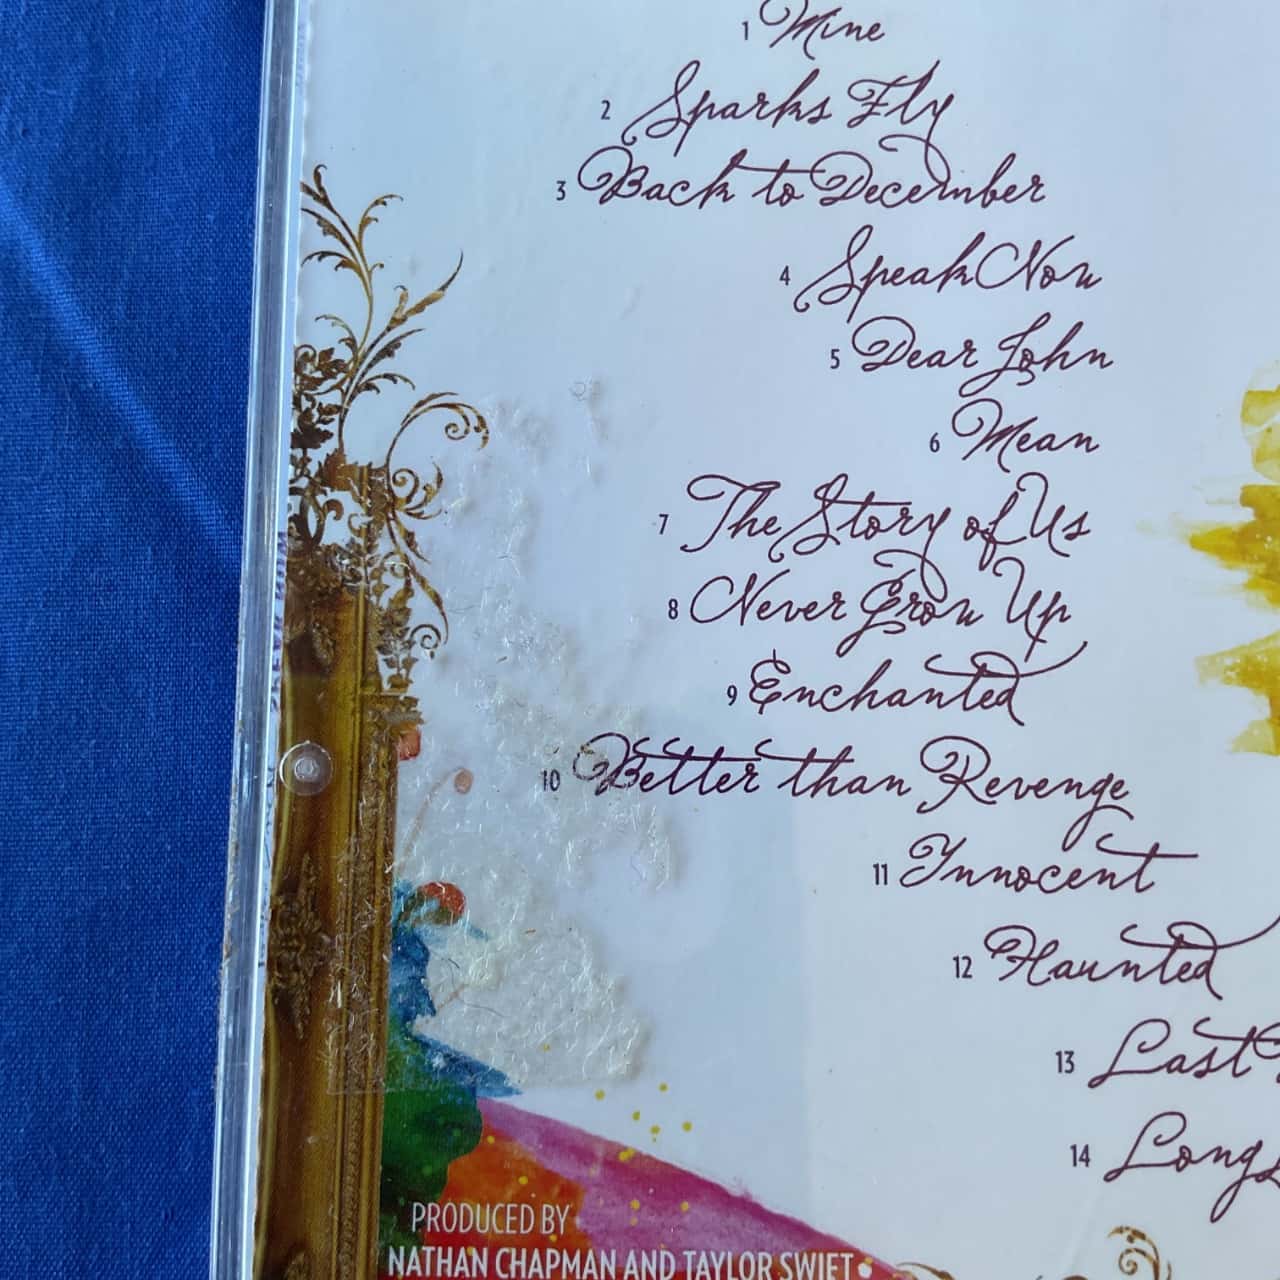 1 Mine
2 Sparks Fly
3 Back to December
4 Speak Now
5 Dear John
6 Mean
7 The Story of Us
8 Never Grow Up
9 Enchanted
10 Better than Revenge
11 Innocent
12 Haunted
13 Last
14 Long
PRODUCED BY
NATHAN CHAPMAN AND TAYLOR SWIFT